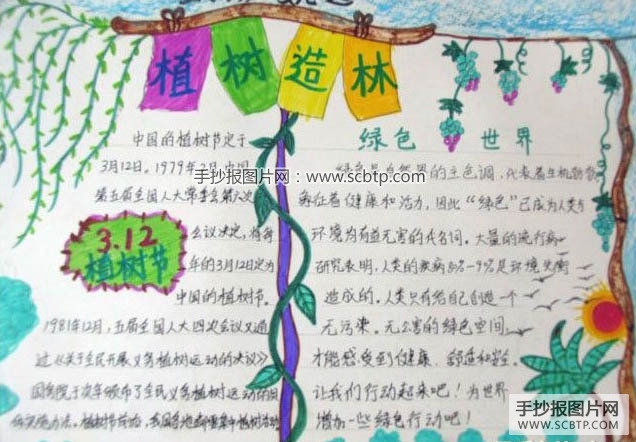 植树造林
中国的植树节定于
3月12日。1979年2月中国
手抄报图片网 www.scbtp.com
第五届全国人大常委会第六次
会议决定,将每
年的3月12日定为
中国的植树节。
3.12
植树节
1981年12月,五届全国人大四次会议又通
过《关于全民开展义务植树运动的决议》
国务院于次年颁布了全民义务植树运动的
绿色世界
绿色是自然界的主色调,代表着生机勃勃
象征着健康和活力,因此“绿色”已成为人类与
环境均有益无害的代名词。大量的流行病
研究表明,人类的疾病
是环境失衡
造成的。人类只有给自己创造一个
无污染。无公害的绿色空间,
才能感受到健康、舒适和安全。
让我们行动起来吧!为世界
增加一些绿色行动吧!
手抄报图片网
SCBTP.COM